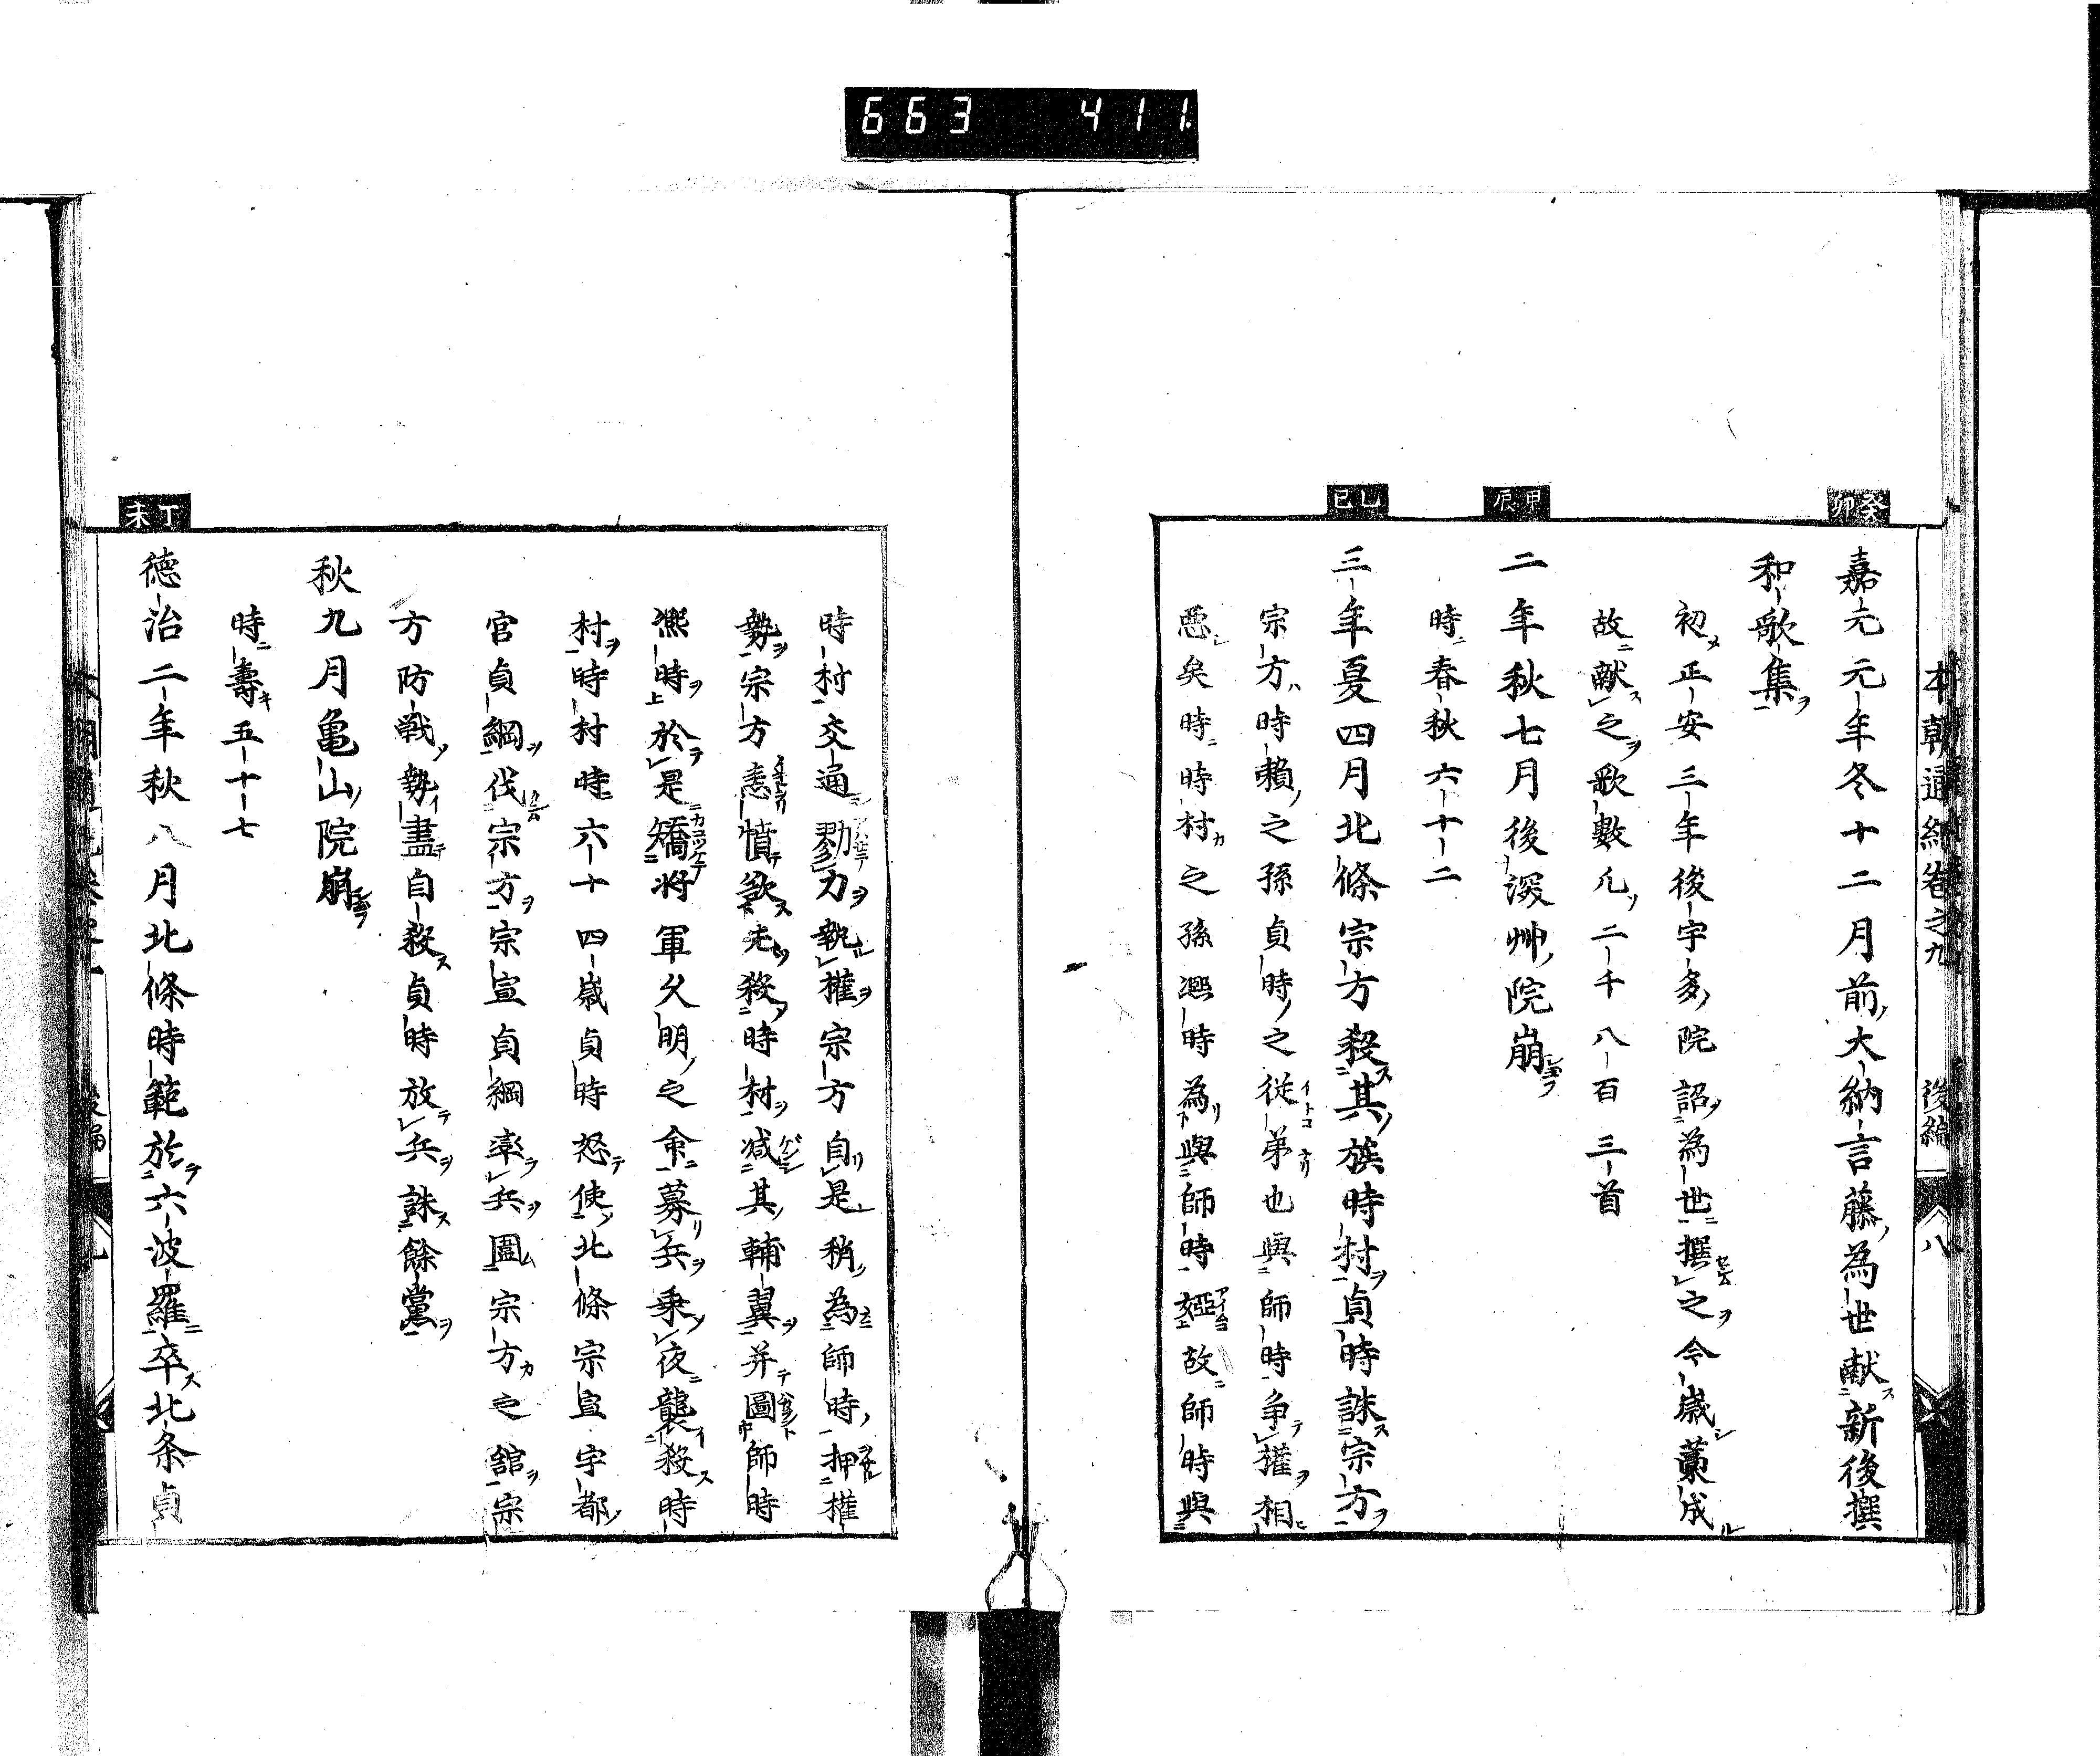 663 411
本朝通紀卷之九 後編 八
癸卯
嘉元元年冬十二月前大納言藤為世献新後撰
和歌集
初正安三年後宇多院詔為世撰之今歳藁成
故献之歌數凢二千八百三首
甲辰
二年秋七月後深艸院崩
時春秋六十二
乙巳
三年夏四月北條宗方殺其族時村貞時誅宗方
宗方時賴之孫貞時之従弟也與師時争權相
悪矣時時村之孫凞時為與師時婭故師時與
時村交通勠力執權宗方自是稍為師時押權
勢宗方恚憤欲先殺時村减其輔翼并圖師時
凞時於是矯将軍久明之命募兵乗夜襲殺時
村時村時六十四歳貞時怒使北條宗宣宇都
官貞綱伐宗方宗宣貞綱率兵圍宗方之舘宗
方防戦勢盡自殺貞時放兵誅餘黨
秋九月亀山院崩
時壽五十七
丁未
徳治二年秋八月北條時範於六波羅卒北条貞